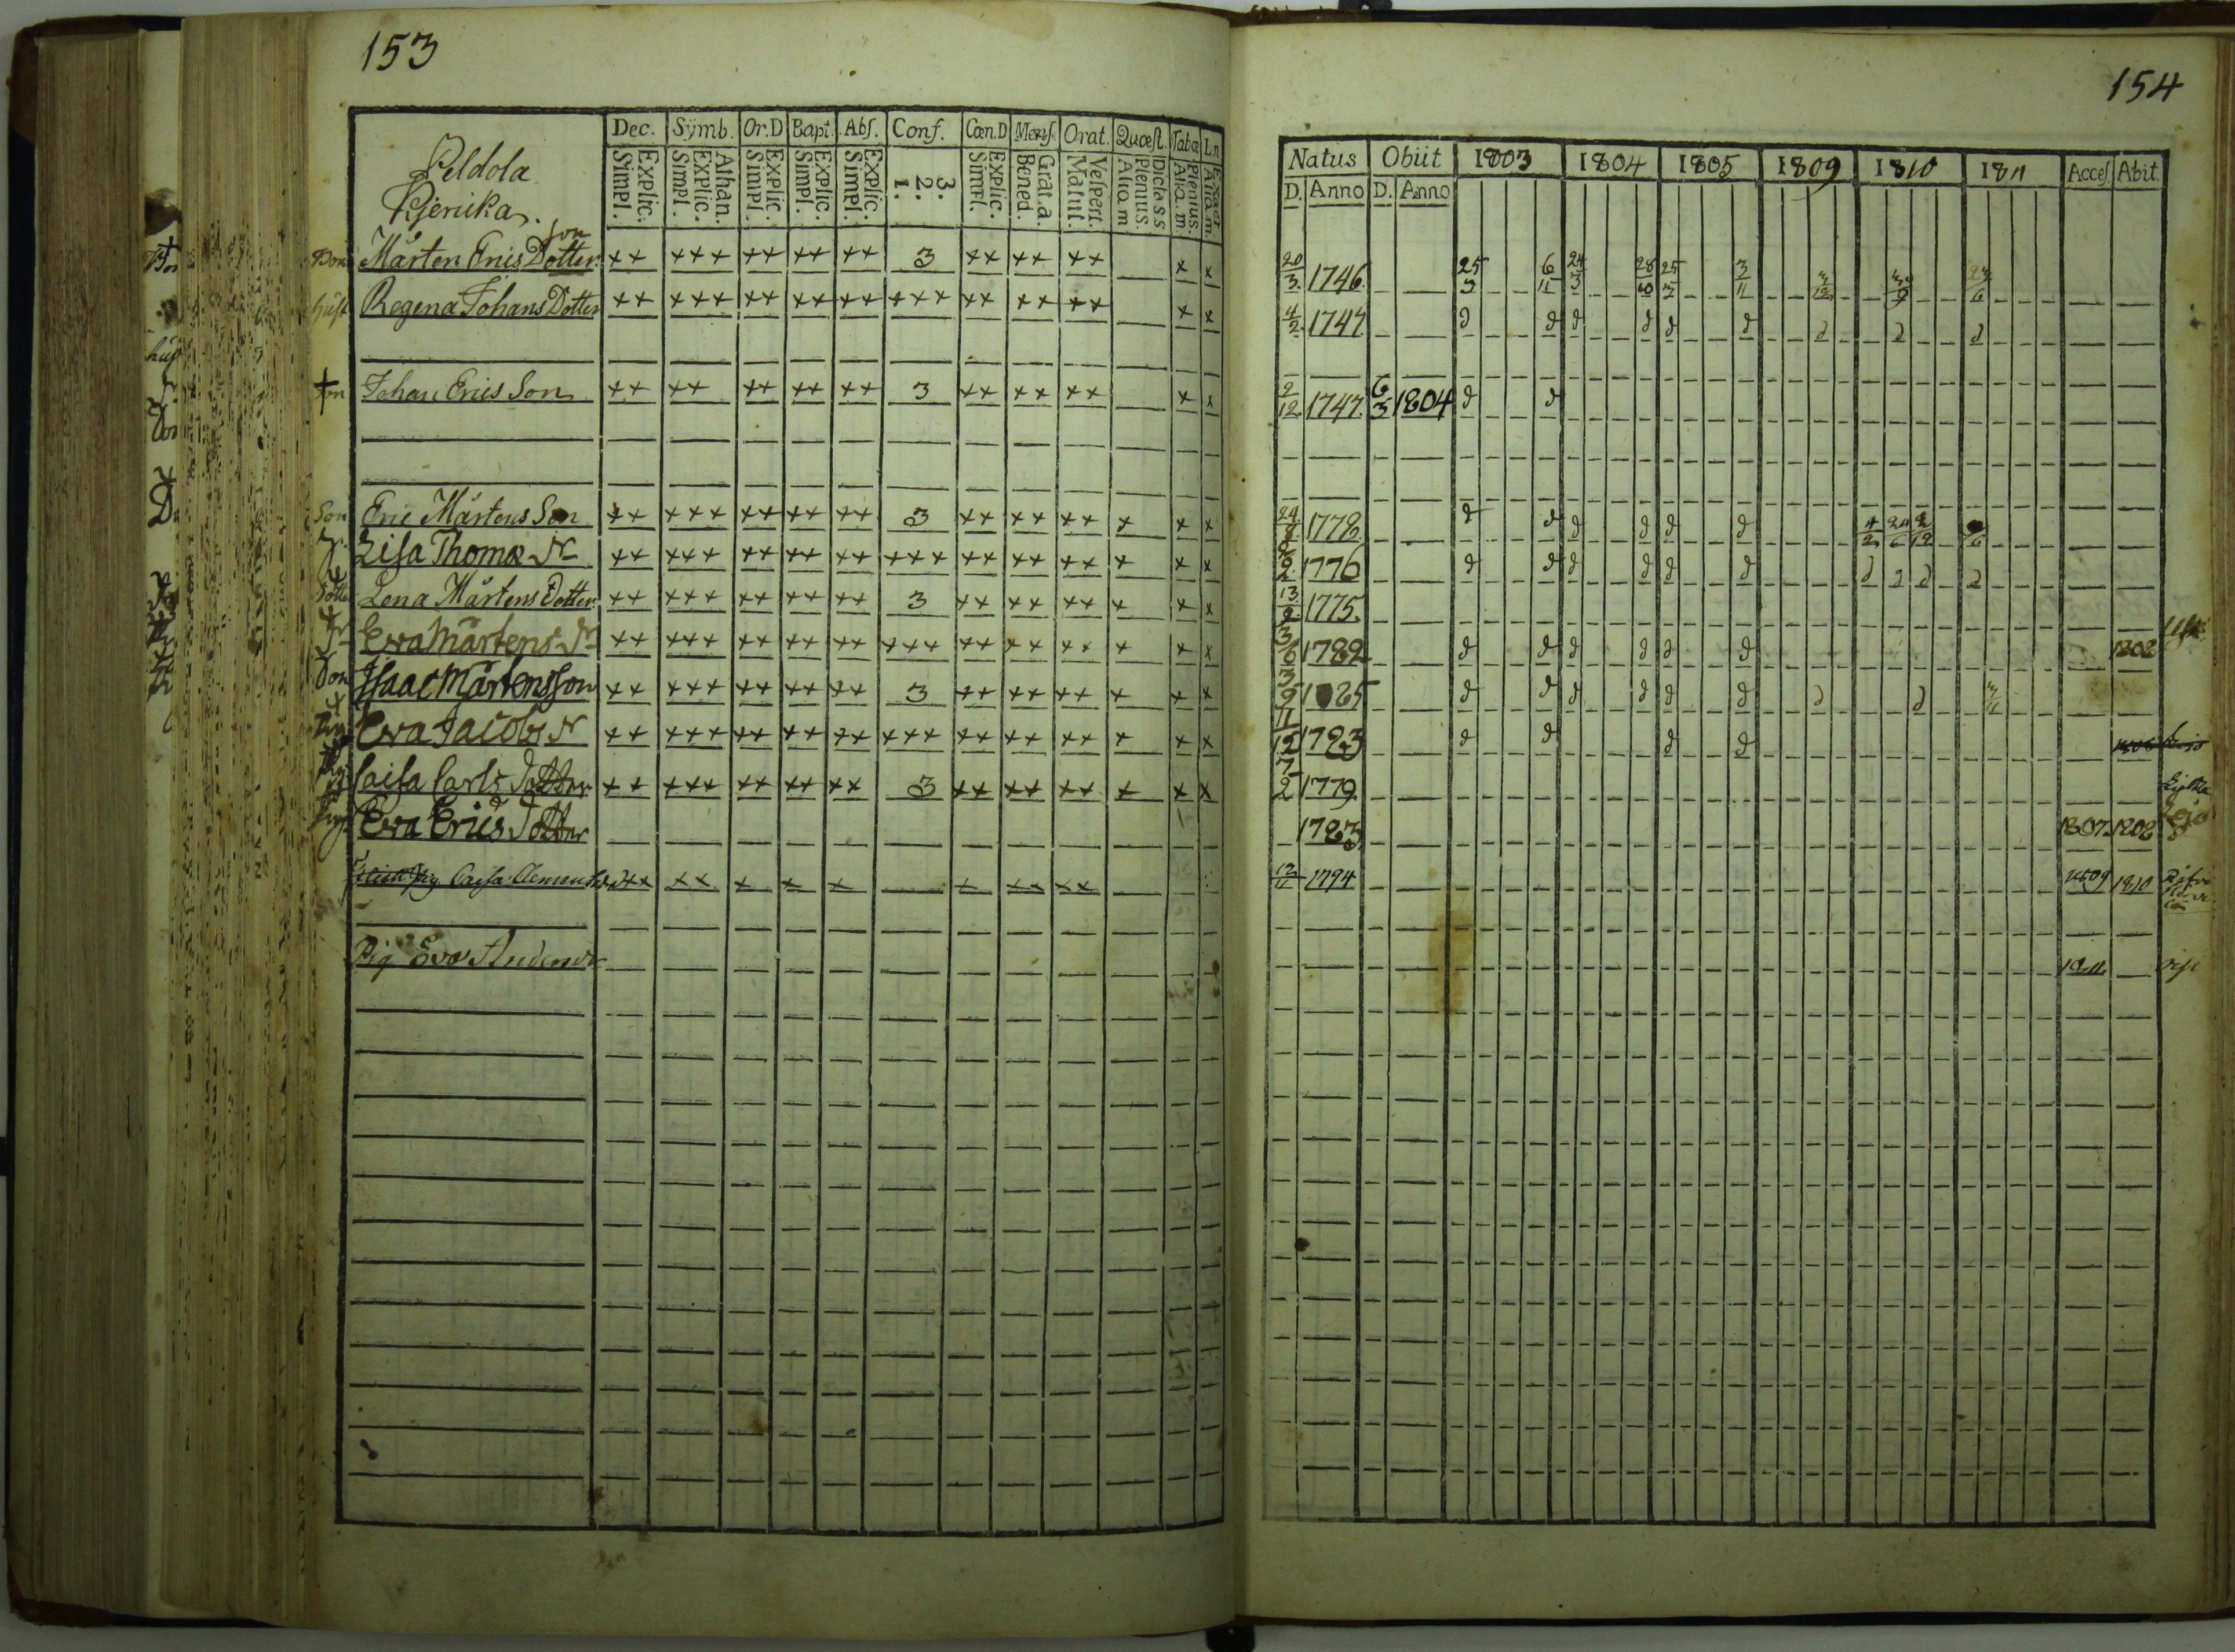 153
Peldola
Kjericka.
Dec. Symb. Or.D Bapt. Abs. Conf. Cœn.D Mens. Orat. Quæst. Tabœ Ln
Explic. Simpl. Athan. Explic. Simpl. Explic. Simpl. Explic. Simpl. Explic. Simpl. 3. 2. 1. Explic. Simpl. Grat.a. Bened. Vespert. Matut. Dictass Plenius. Aliq.m Plenius. Aliq.m. Exact Aliq.m.
son
Bon Mårten Erics Dotter ++ +++ ++ ++ ++ 3 ++ ++ ++ x x
hust Regena Johans Dotter ++ +++ ++ ++ ++ +++ ++ ++ ++ x x
Johan Erics Son ++ ++ ++ ++ ++ 3 ++ ++ ++ x x
Son Eric Mårtens Son ++ +++ ++ ++ ++ 3 ++ ++ ++ + x x
Lisa Thomæ dr ++ +++ ++ ++ ++ +++ ++ ++ ++ + x x
Dotter Lena Mårtens Dotter ++ +++ ++ ++ ++ 3 ++ ++ ++ + x x
Eva Mårtens dr ++ +++ ++ ++ ++ +++ ++ ++ ++ + x x
Son Isaac Mårtensson ++ +++ ++ ++ ++ 3 ++ ++ ++ + x x
Eva Jacobs dr ++ +++ ++ ++ ++ +++ ++ ++ ++ + x x
Caisa Carls Dotter ++ +++ ++ ++ ++ 3 ++ ++ ++ + x x
Eva Erics Dotter
Pig. Caisa Clemens dr ++ ++ + + + + ++ ++
Pig Eva Anders dr
154
Natus Obiit 1803 1804 1805 1809 1810 1811 Acces. Abit.
D. Anno D. Anno
20/3 1746. 25/3 6/11 24/3 28/10 25/3 3/11
4/2 1747 d d d d d d d d d
2/12 1747. 6/3 1804 d d
24/8 1778 d d d d d d
2/2 1776 d d d d d d d d d d
13/2 1775.
3/6 1782 d d d d d d 1808
3/9 1785 d d d d d d d d
11/12 1783 d d d d
7/2 1779
1783 1807. 1808
12/11 1794 1809 1810
1811